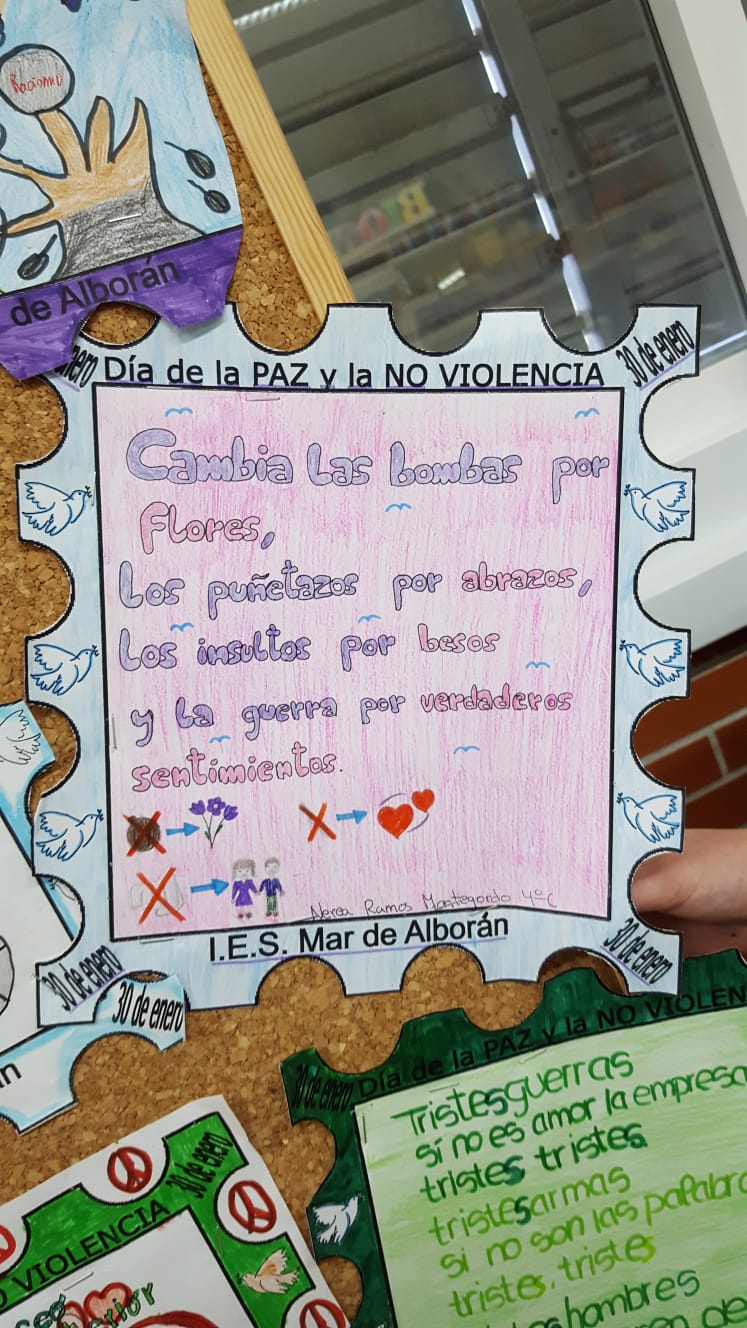 Racismo
de Alborán
BIO
enero
Día de la PAZ y la NO VIOLENCIA
30 de enero
Cambia las bombas por
Flores,
los puñetazos por abrazos,
los insultos por besos
y la guerra por verdaderos
sentimientos.
Nerea Ramos Montegordo 4ºC
I.E.S. Mar de Alborán
30 de enero
30 de enero
30 de enero
30 de enero
Día de la PAZ y la NO VIOLEN
Tristes guerras
si no es amor la empresa
tristes tristes
tristes armas
si no son las palabra
triste, triste
hombres
de
30 de enero
O VIOLENCIA